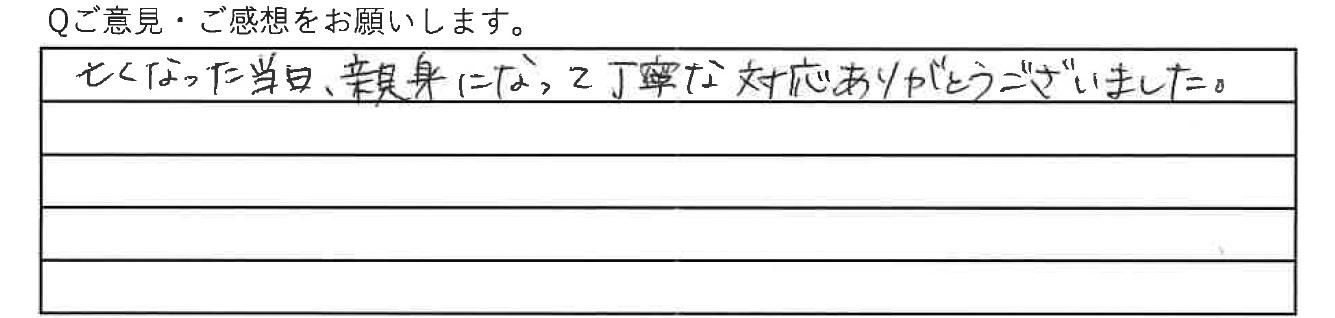 Qご意見・ご感想をお願いします。
亡くなった当日、親身になって丁寧な対応ありがとうございました。